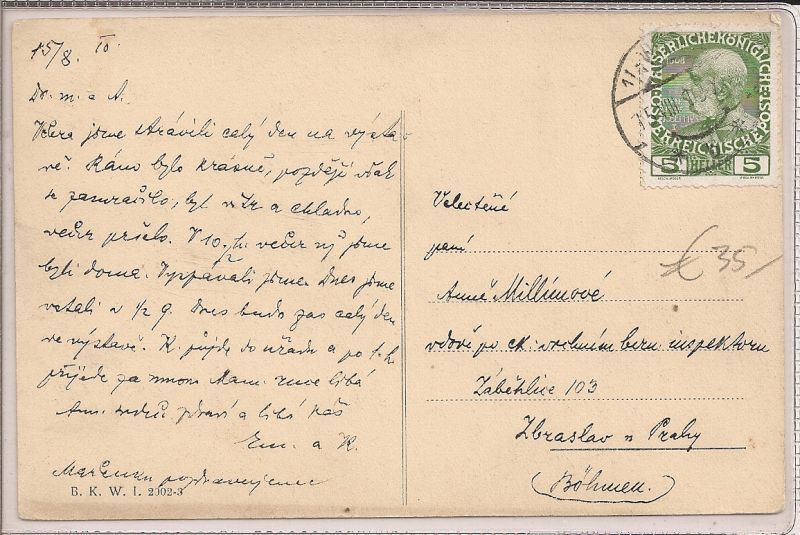 15/8. 10.
Dr. m. a A.
Včera jsme strávili celý den na výsta-
vě. Ráno bylo krásně, později však
se zamračilo, byl vítr a chladno,
večer pršelo. V 10 h. večer již jsme
byli doma. Vyspávali jsme. Dnes jsme
vstali v 1/2 9. Dnes budu zas celý den
ve výstavě. K. půjde do úřadu a po 1. h.
přijede za mnou. Mam. ruce líbá
Ant. srdeč. zdraví a líbá Váš
Em. a K.
Mařenku pozdravujeme
B. K. W. I. 2002-3
KAISERLICHEKÖNIGLICHE
1908
ÖSTERREICHISCHE POST
5 HELLER 5
Velectěné
paní
Anně Millimové
vdově po ck. vrchním bern. inspektoru
Záběhlice 103
Zbraslav n Prahy
(Böhmen.)
€ 35/